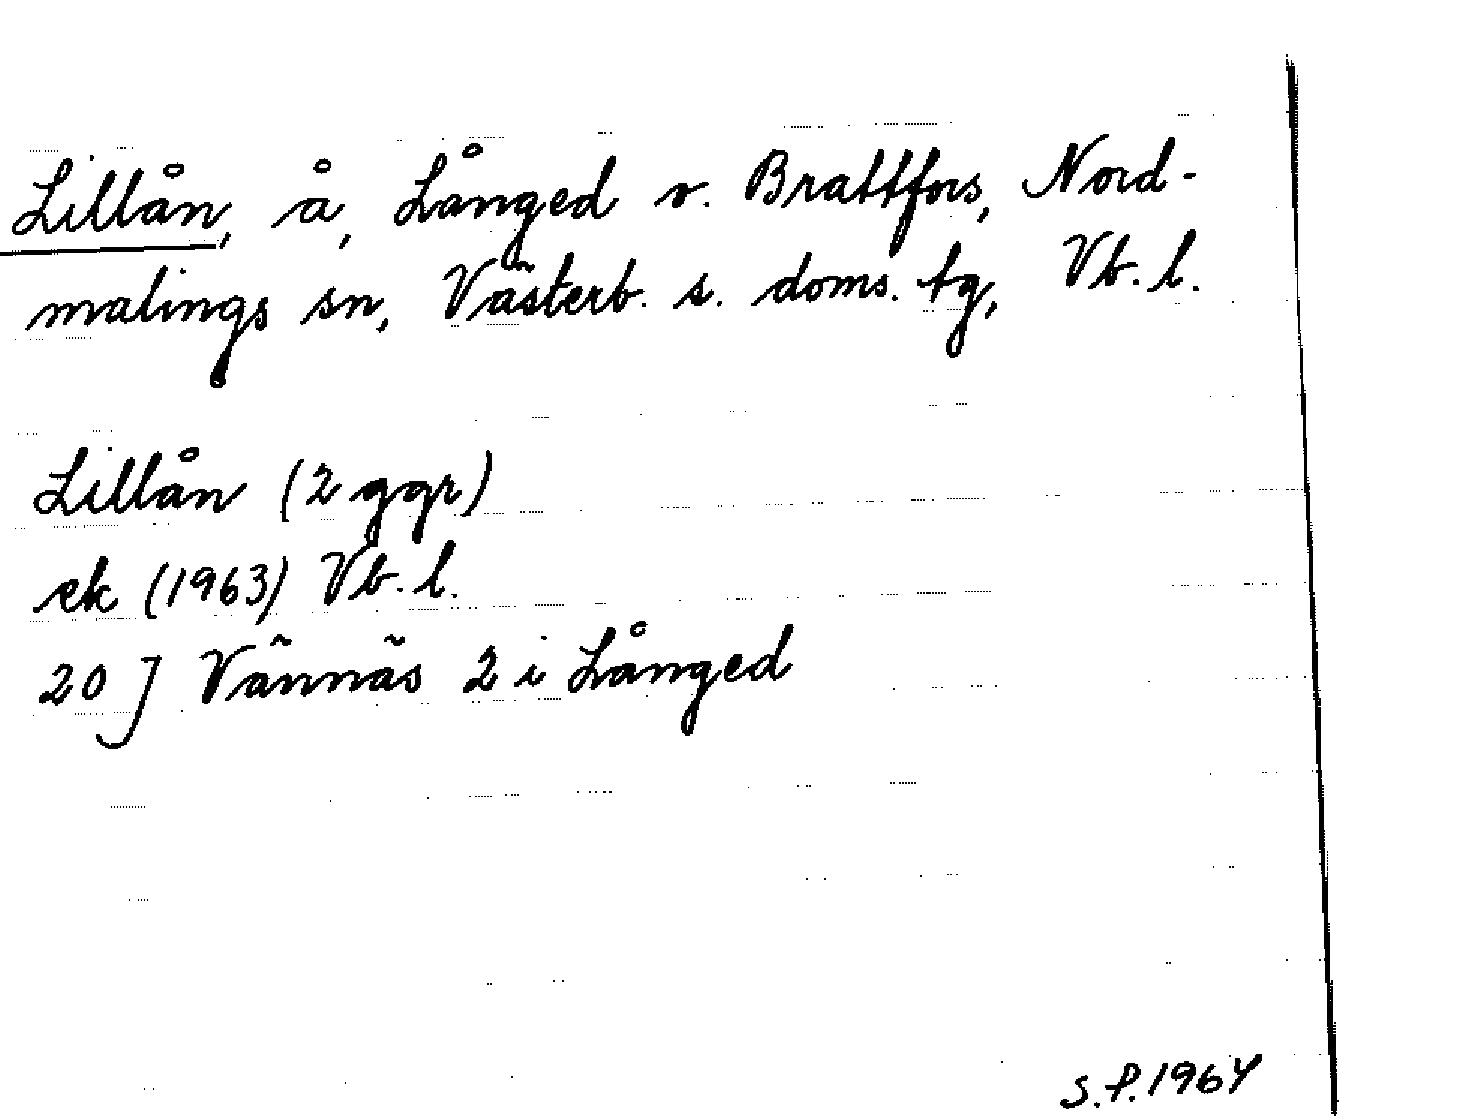 Lillån, å, Långed v. Brattfors, Nord-
malings sn, Västerb. s. doms. tg, Vb. l.
Lillån (2 ggr)
ek (1963) Vb. l.
20 J Vännäs 2 i Långed
S.P. 1964